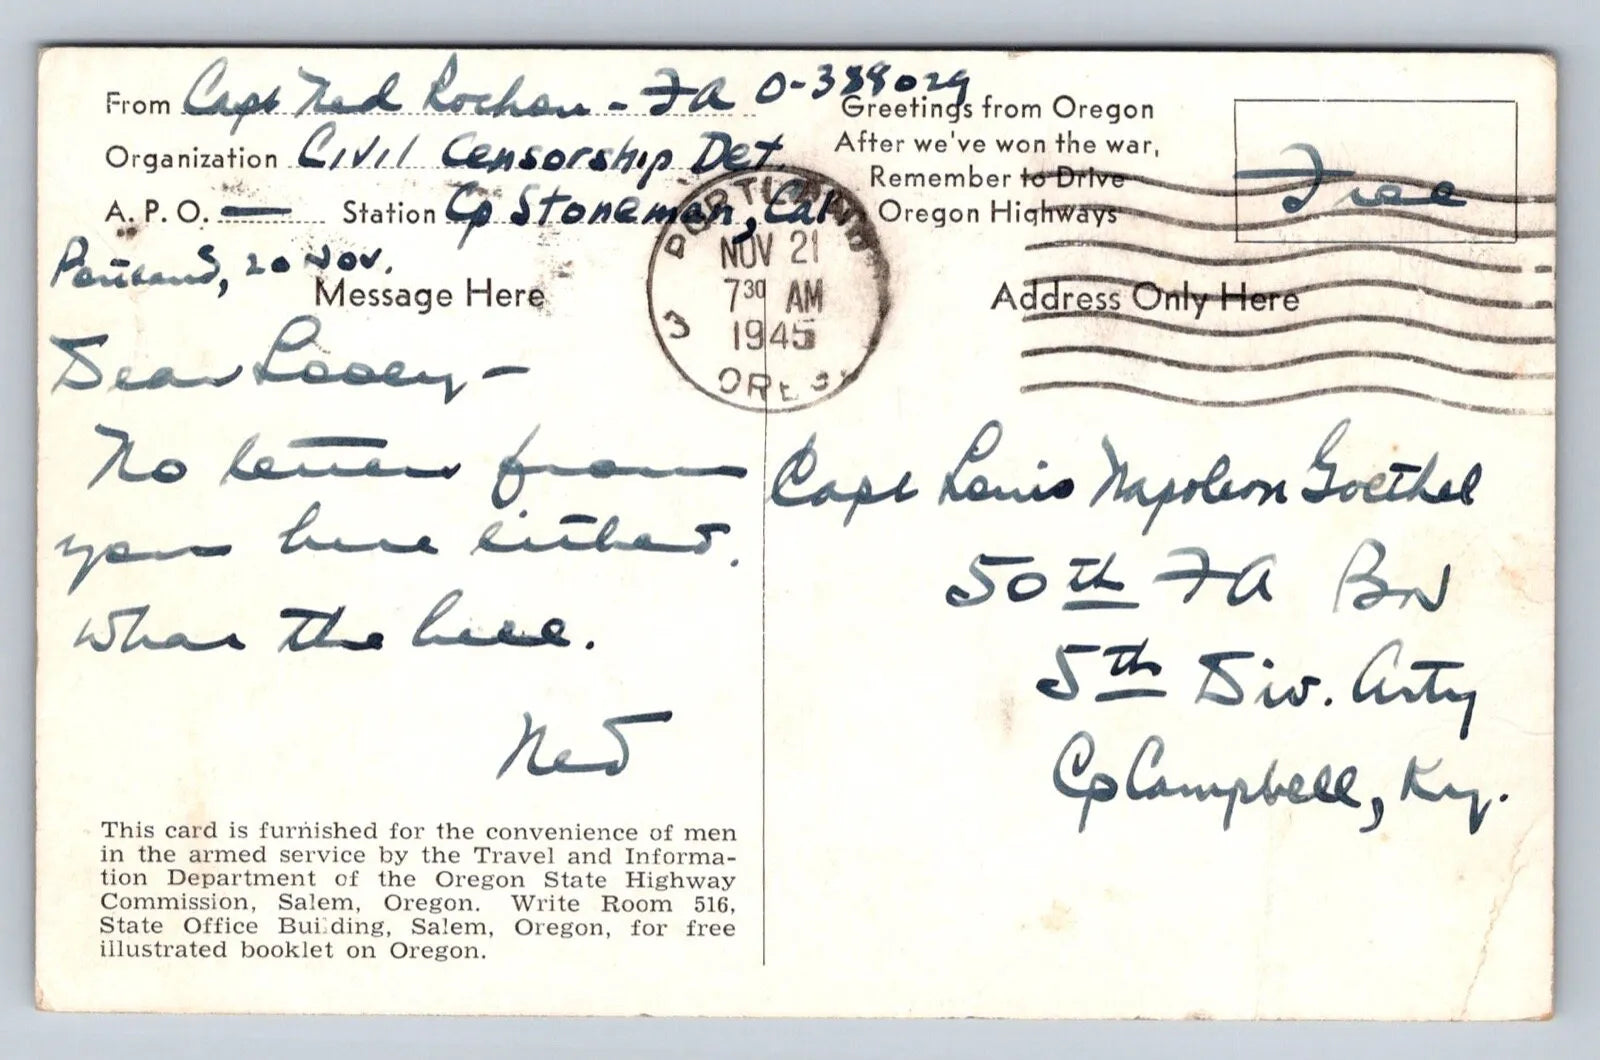 From Capt Ned Rochon - FA O-388029
Organization Civil Censorship Det
A. P. O. — Station Cp Stoneman, Cal
Portland, 20 Nov.
Message Here
Dear Looey -
No letter from
you here either.
What the hell.
Ned
This card is furnished for the convenience of men
in the armed service by the Travel and Informa-
tion Department of the Oregon State Highway
Commission, Salem, Oregon. Write Room 516,
State Office Building, Salem, Oregon, for free
illustrated booklet on Oregon.
Greetings from Oregon
After we've won the war,
Remember to Drive
Oregon Highways
Free
PORTLAND
NOV 21
7 30 AM
1945
3
OREG
Address Only Here
Capt Louis Napoleon Goethel
50th FA BN
5th Div. Arty
Cp Campbell, Ky.